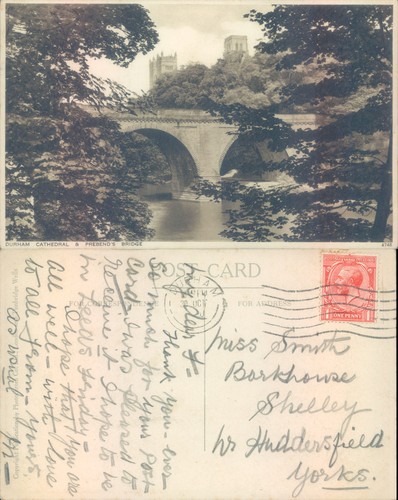 DURHAM CATHEDRAL & PREBEND'S BRIDGE
POST CARD
FOR ADDRESS
ONE PENNY
My dear
Thank you ever
So much for your post
Card. I was pleased to
receive it I hope to be
in
I hope that you are
all well – with love
to all from – yours
as usual
Miss Smith
Barkhouse
Shelley
Nr Huddersfield
Yorks.